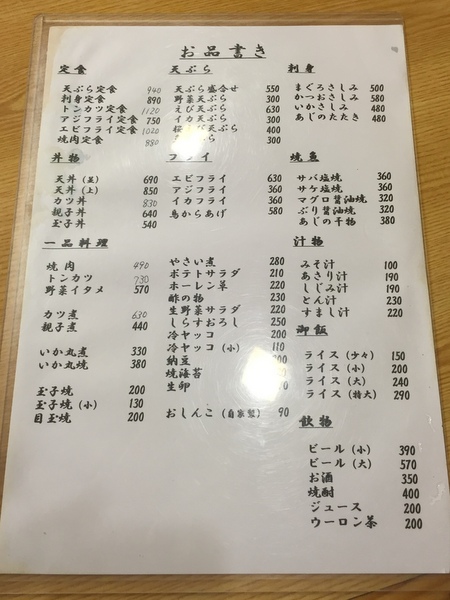 お品書き
定食
天ぷら定食 940
刺身定食 890
トンカツ定食 1120
アジフライ定食 750
エビフライ定食 1020
焼肉定食 880
丼物
天丼 (並) 690
天丼 (上) 850
カツ丼 830
親子丼 640
玉子丼 540
一品料理
焼肉 490
トンカツ 730
野菜イタメ 570
カツ煮 630
親子煮 440
いか丸煮 330
いか丸焼 380
玉子焼 200
玉子焼 (小) 130
目玉焼 200
天ぷら
天ぷら盛合せ 550
野菜天ぷら 300
えび天ぷら 630
イカ天ぷら 300
天ぷら 400
300
フライ
エビフライ 630
アジフライ 360
イカフライ 360
鳥からあげ 580
やさい煮 280
ポテトサラダ 210
ホーレン草 220
酢の物 230
生野菜サラダ 220
しらすおろし 250
冷ヤッコ 200
冷ヤッコ (小) 110
納豆 200
焼海苔 200
生卵
おしんこ (自家製) 90
刺身
まぐろさしみ 500
かつおさしみ 580
いかさしみ 480
あじのたたき 480
焼魚
サバ塩焼 360
サケ塩焼 360
マグロ醤油焼 320
ぶり醤油焼 320
あじの干物 380
汁物
みそ汁 100
あさり汁 190
しじみ汁 190
とん汁 230
すまし汁 220
御飯
ライス (少々) 150
ライス (小) 200
ライス (大) 240
ライス (特大) 290
飲物
ビール (小) 390
ビール (大) 570
お酒 350
焼酎 400
ジュース 200
ウーロン茶 200